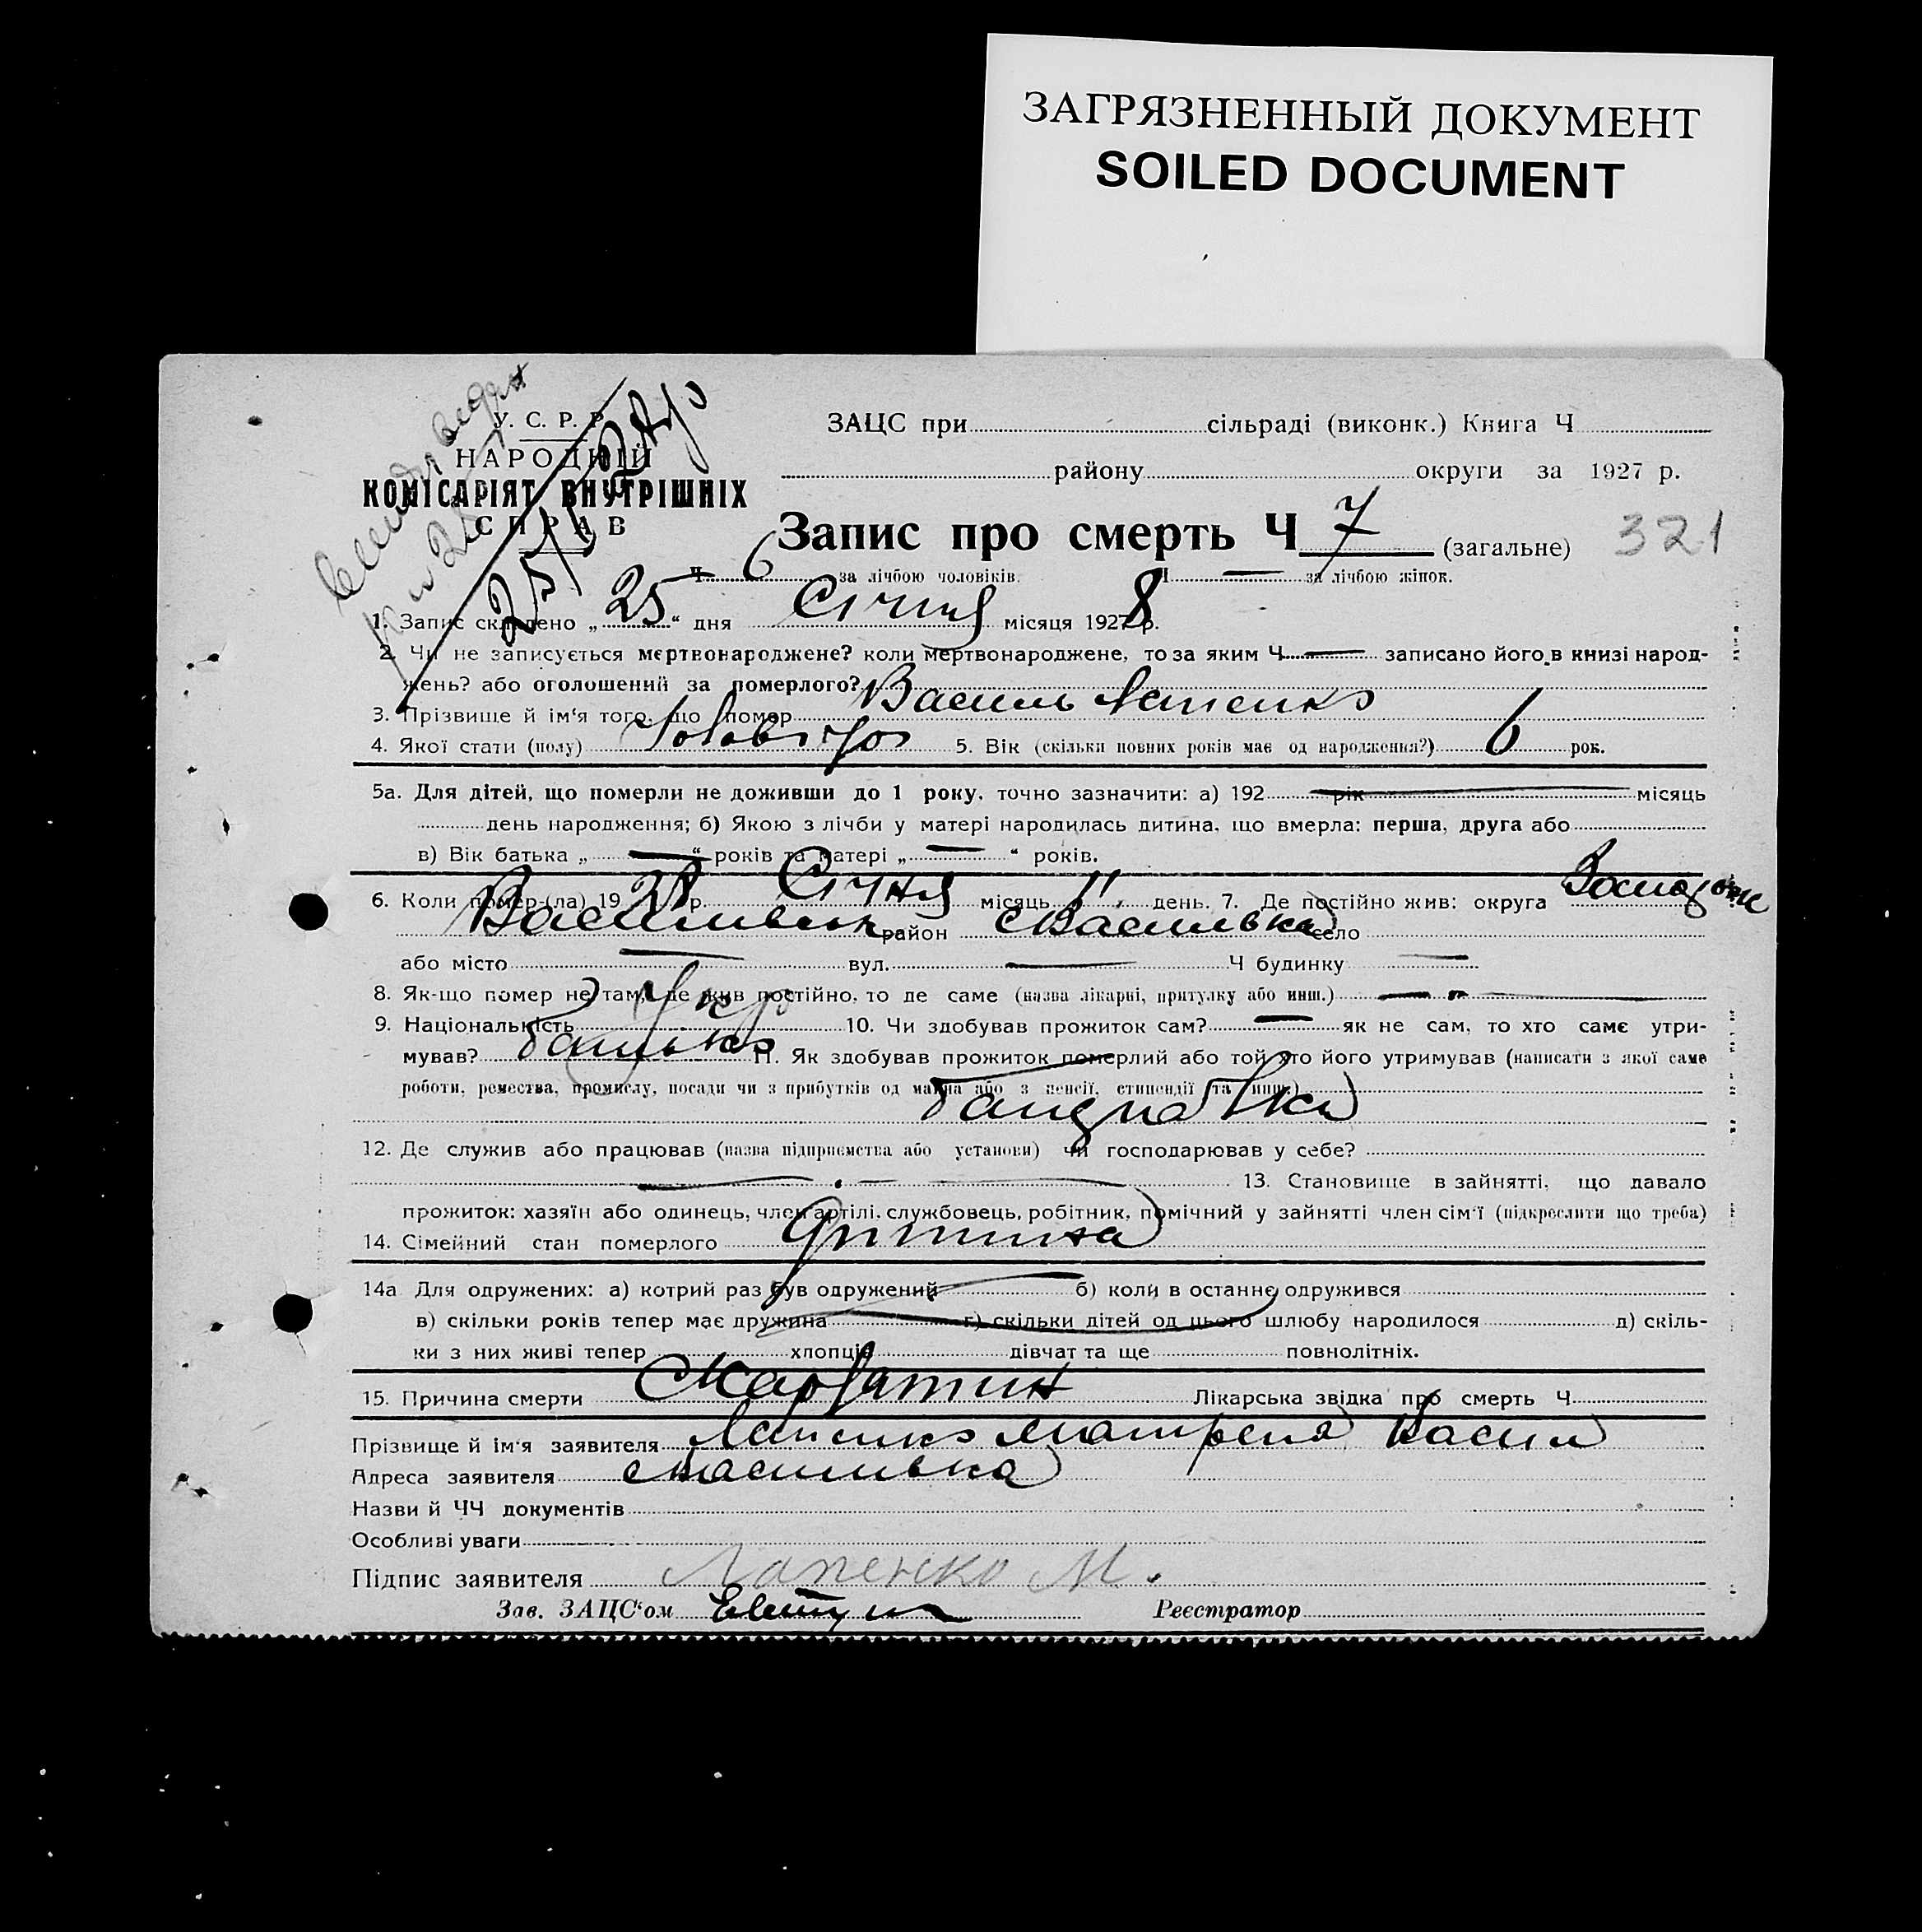 ЗАГРЯЗНЕННЫЙ ДОКУМЕНТ
SOILED DOCUMENT
У. С. Р. Р.
НАРОДНІЙ
КОМІСАРІЯТ ВНУТРІШНІХ
СПРАВ
25/I 28 р
ЗАЦС при сільраді (виконк.) Книга Ч
району округи за 1927 р.
Запис про смерть Ч 7 (загальне) 321
Ч 6 за лічбою чоловіків. Ч — за лічбою жінок.
1. Запис складено „ 25 “ дня Січня місяця 1927 8 р.
2. Чи не записується мертвонароджене? коли мертвонароджене, то за яким Ч — записано його в книзі народ-
жень? або оголошений за померлого?
3. Прізвище й ім‘я того, що помер Василь Лапенко
4. Якої стати (полу) 5. Вік (скільки повних років має од народження?) 6 рок.
5а. Для дітей, що померли не доживши до 1 року, точно зазначити: а) 192 рік місяць
день народження; б) Якою з лічби у матері народилась дитина, що вмерла: перша, друга або
в) Вік батька „ — “ років та матері „ — “ років.
6. Коли помер-(ла) 19 28 р. Січня місяць 11 день. 7. Де постійно жив: округа Запоріж
Васильвськ район с Василівка село
або місто — вул. — Ч будинку —
8. Як-що помер не там, де жив постійно, то де саме (назва лікарні, притулку або инш.) —
9. Національність Укр 10. Чи здобував прожиток сам? — як не сам, то хто саме утри-
мував? батько 11. Як здобував прожиток померлий або той хто його утримував (написати з якої саме
роботи, ремества, промислу, посади чи з прибутків од майна або з пенсії, стипендії та инш.)
12. Де служив або працював (назва підприємства або установи) чи господарював у себе?
— 13. Становище в зайнятті, що давало
прожиток: хазяїн або одинець, член артілі, службовець, робітник, помічний у зайнятті член сім‘ї (підкреслити що треба)
14. Сімейний стан померлого дитина
14а Для одружених: а) котрий раз був одружений б) коли в останнє одружився
в) скільки років тепер має дружина г) скільки дітей од цього шлюбу народилося д) скіль-
ки з них живі тепер хлопців дівчат та ще повнолітніх.
15. Причина смерти Скарлатин Лікарська звідка про смерть Ч
Прізвище й ім‘я заявителя Лапенко Матрена Васил
Адреса заявителя с Василивка
Назви й ЧЧ документів
Особливі уваги
Підпис заявителя Лапенко М.
Зав. ЗАЦС‘ом Реєстратор